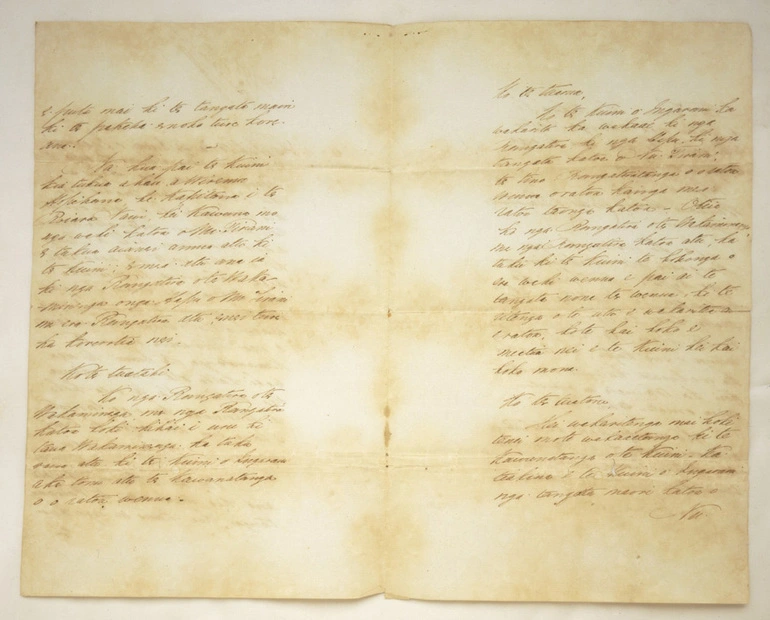 e puta mai ki te tangata maori
ki te pakeha e noho ture kore
ana.
Na kua pai te Kuini
kia tukua a hau a Wiremu
Hopihana he Kapitana i te
Roiara Nawi hei Kawana mo
nga wahi katoa o Nu Tirani
e tukua aianei amua atu ki
te Kuini, e mea atu ana ia
ki nga Rangatira o te Waka-
minenga o nga Hapu o Nu Tirani
me era Rangatira atu enei ture
ka korerotia nei.
Ko te tuatahi
Ko nga Rangatira o te
Wakaminenga me nga Rangatira
katoa hoki kihai i uru ki
taua Wakaminenga ka tuku
rawa atu ki te Kuini o Ingarani
ake tonu atu te Kawanatanga
o o ratou wenua.
Ko te tuarua,
Ko te Kuini o Ingarani ka
wakarite ka wakaae ki nga
Rangatira ki nga Hapu, ki nga
tangata katoa o Nu Tirani,
te tino Rangatiratanga o o ratou
wenua o ratou kainga me o
ratou taonga katoa. Otiia
ko nga Rangatira o te Wakaminenga
me nga Rangatira katoa atu, ka
tuku ki te Kuini te hokonga o
era wahi wenua e pai ai te
tangata nona te wenua, ki te
ritenga o te utu e wakaritea ai
e ratou, ko te kai hoko e
meatia nei e te Kuini hei kai
hoko mona.
Ko te tuatoru,
Hei wakaritenga mai hoki
tenei mo te wakaaetanga ki te
Kawanatanga o te Kuini. Ka
tiakina e te Kuini o Ingarani
nga tangata maori katoa o
Nu